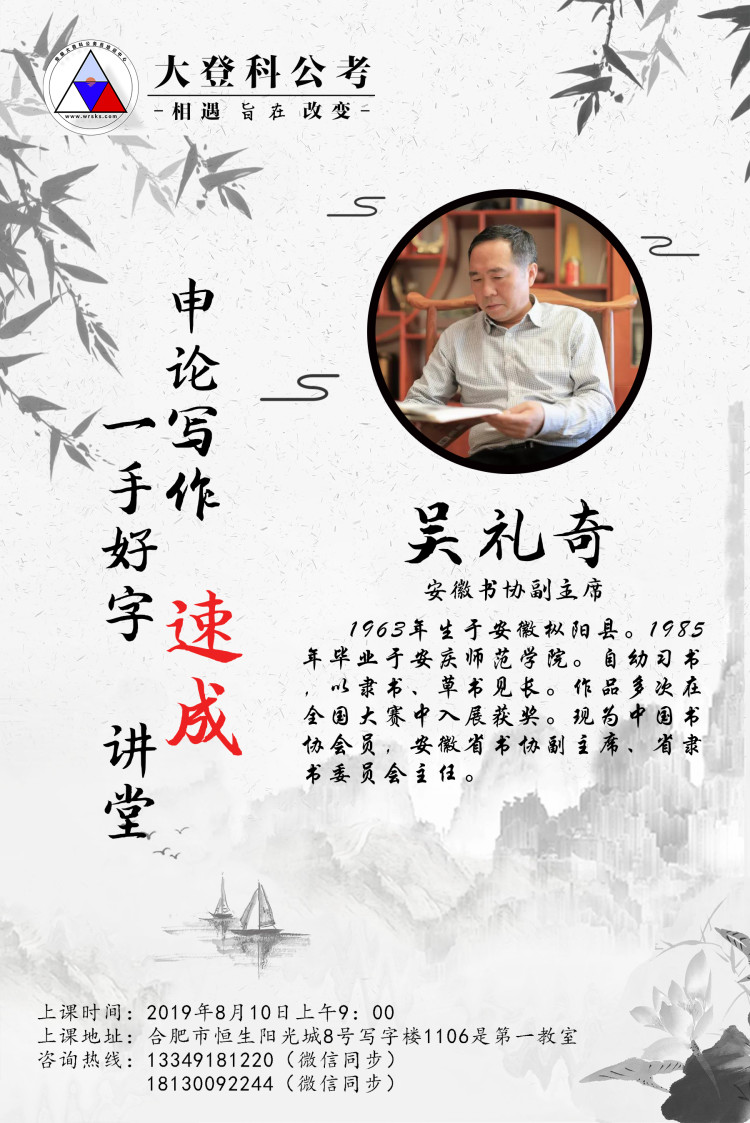 大登科公考
-相遇 旨在 改变-
www.wrsks.com
申论写作
一手好字
速成
讲堂
吴礼奇
安徽书协副主席
1963年生于安徽枞阳县。1985
年毕业于安庆师范学院。自幼习书
，以隶书、草书见长。作品多次在
全国大赛中入展获奖。现为中国书
协会员，安徽省书协副主席、省隶
书委员会主任。
上课时间：2019年8月10日上午9：00
上课地址：合肥市恒生阳光城8号写字楼1106是第一教室
咨询热线：13349181220（微信同步）
18130092244（微信同步）